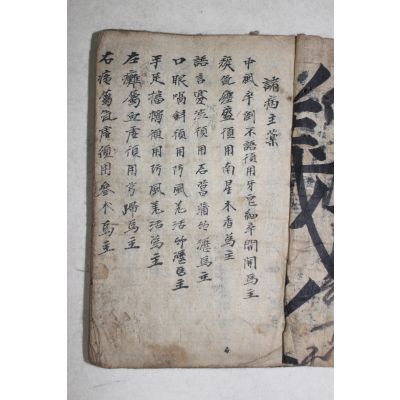 諸病主藥
中風卒倒不語須用牙皂細辛開關爲主
痰氣壅盛須用南星木香爲主
語言蹇澁須用石菖蒲竹瀝爲主
口眼喎斜須用防風羌活竹瀝爲主
手足搐搦須用防風羌活爲主
左癱屬血虛須用芎歸爲主
右瘓屬氣虛須用參朮爲主